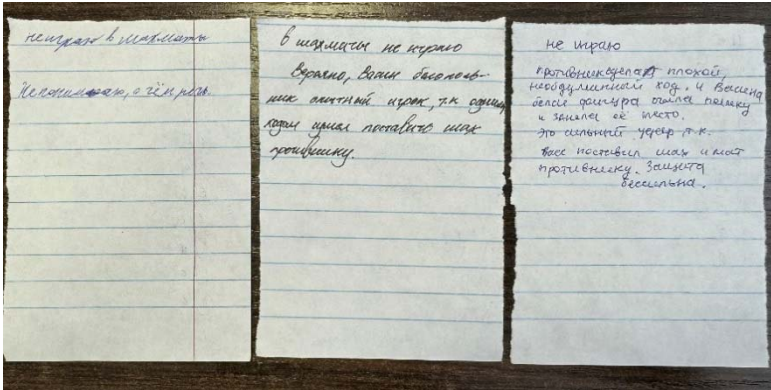 не играю в шахматы
Не понимаю, о чём речь.
в шахматы не играю
Вероятно, Васин
опытный игрок, т.к. одним
ходом сумел поставить шах
противнику.
не играю
противник сделал плохой,
необдуманный ход, и Васина
белая фигура съела пешку
и заняла её место.
Это сильный удар т.к.
Вася поставил шах и мат
противнику. Защита
бессильна.